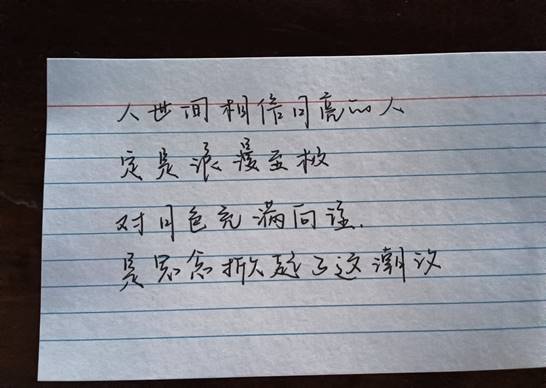 人世间相信月亮的人
定是浪漫至极
对月色充满向往.
是思念掀起了这潮汐